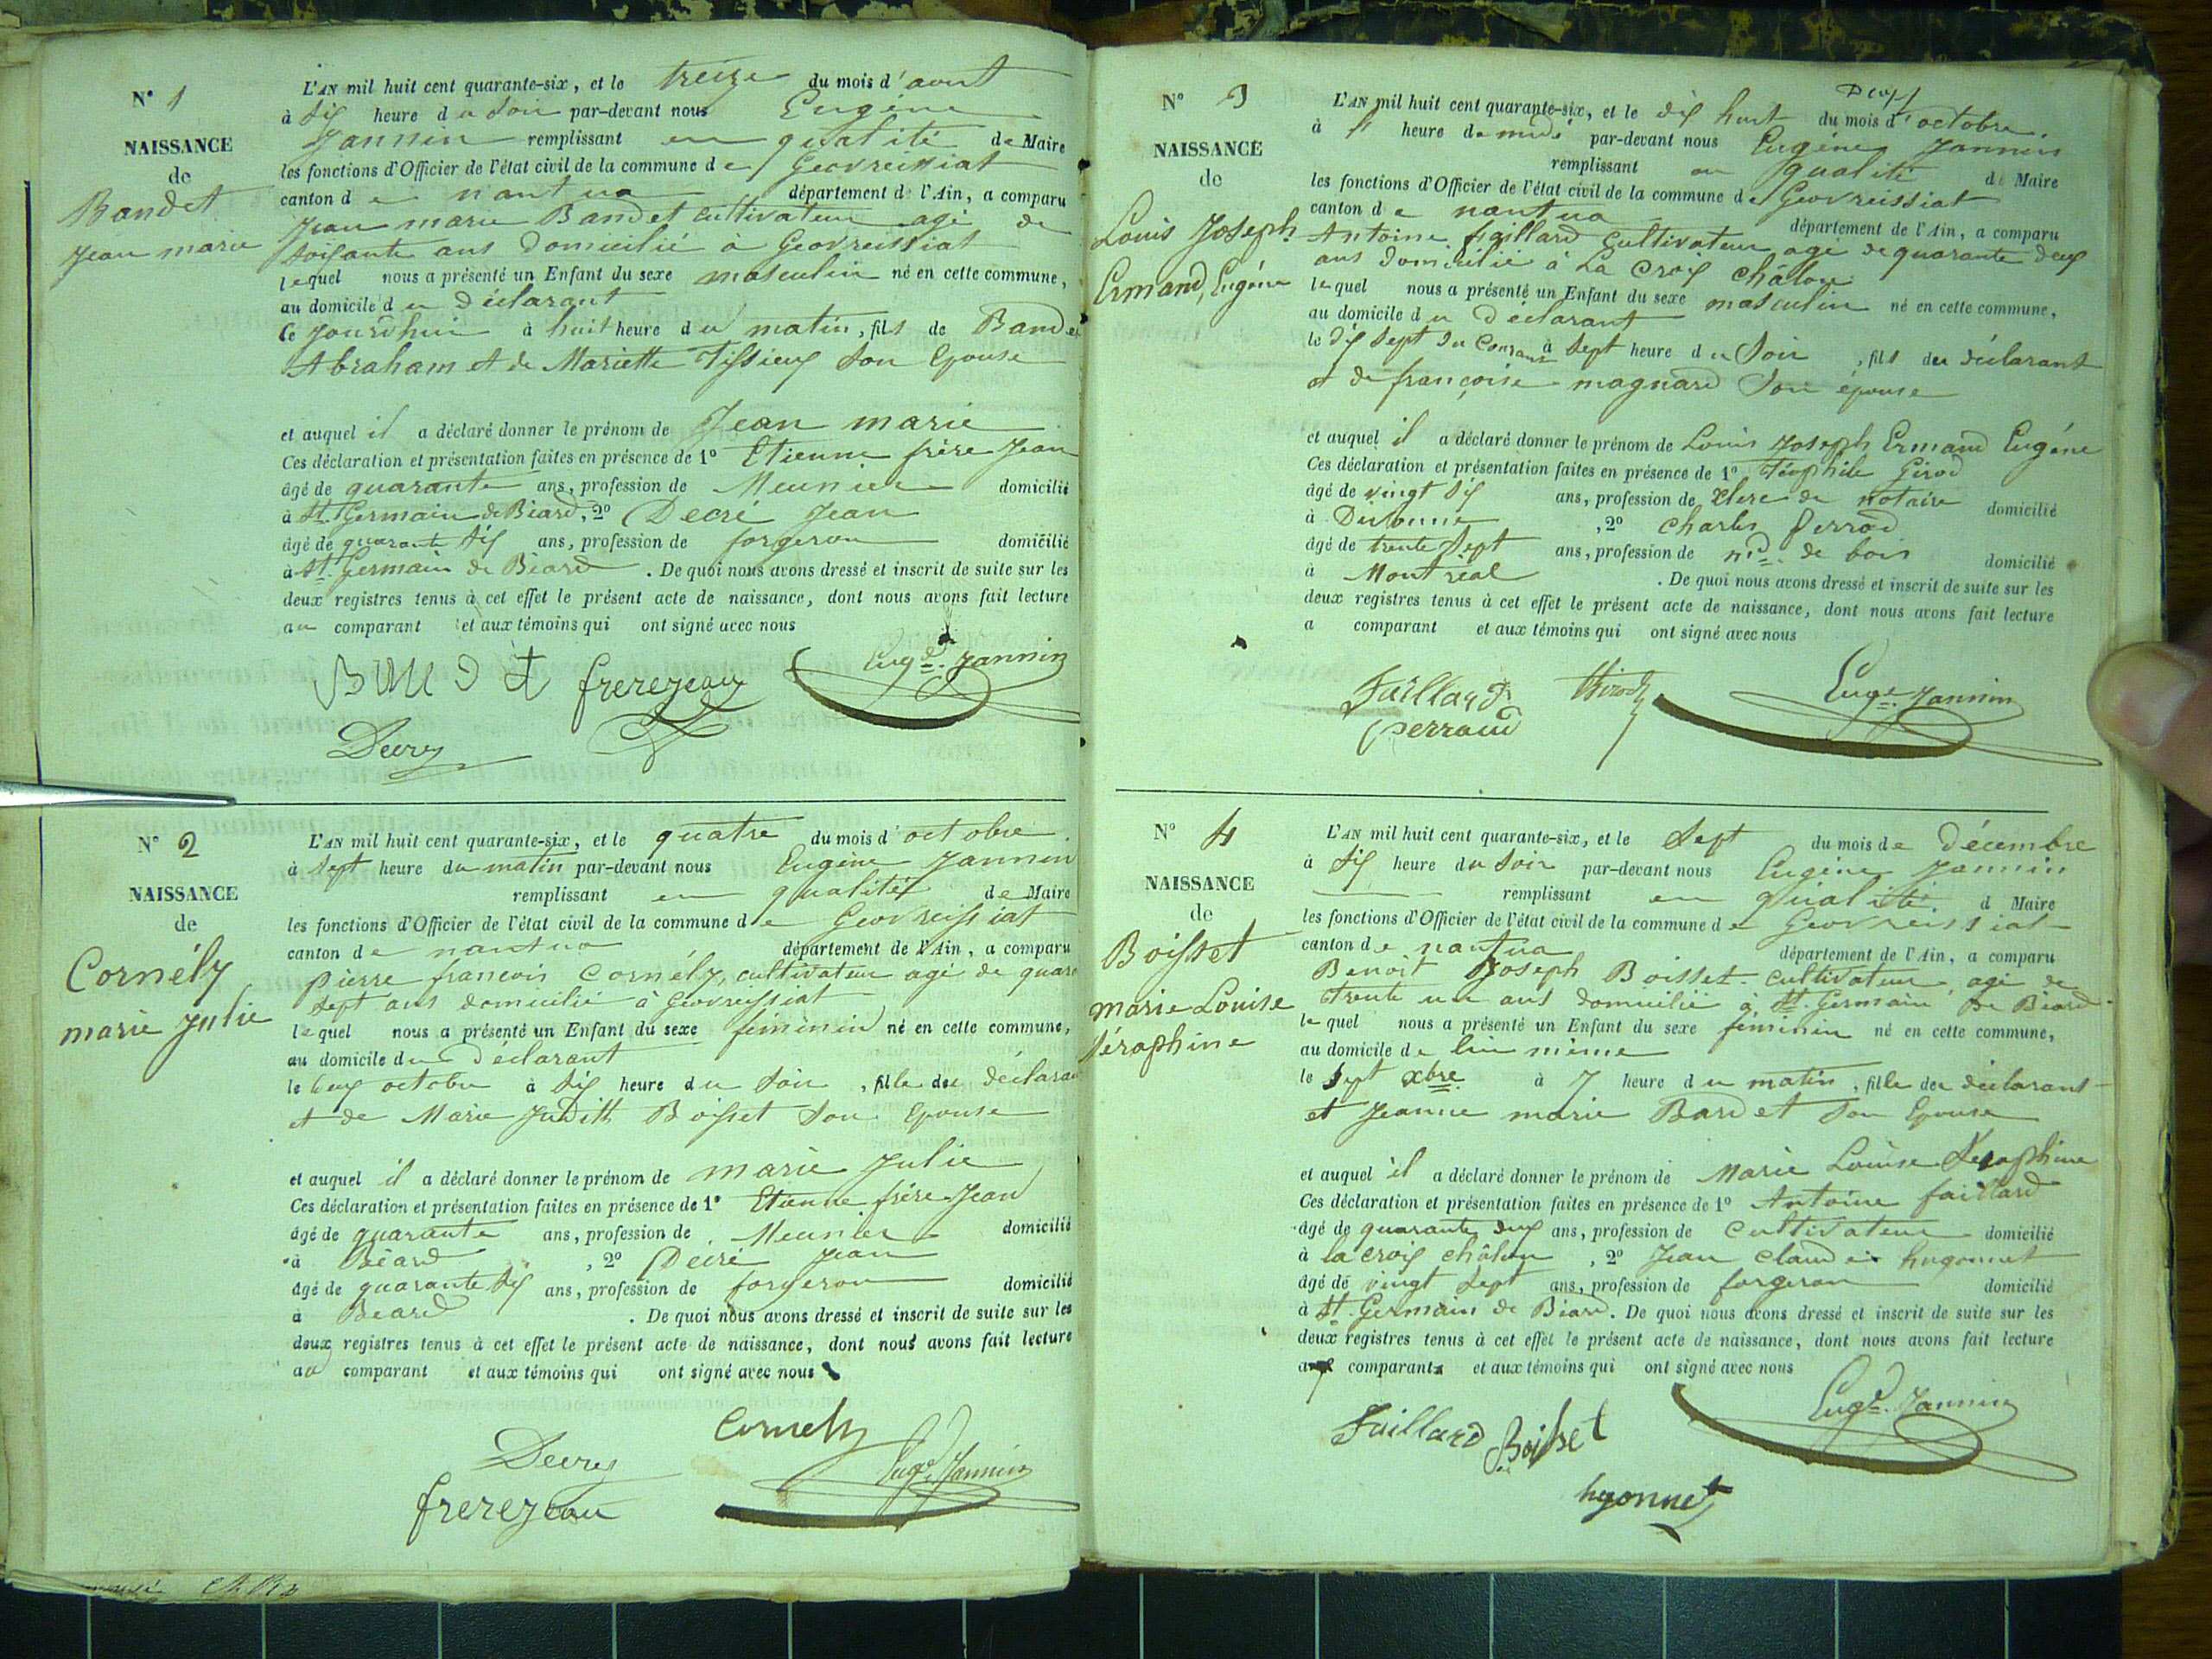 N° 1
NAISSANCE
de
Bandet
Jean marie
L'AN mil huit cent quarante-six, et le treize du mois d'aout
à six heure du Soir par-devant nous Eugène
Jannin remplissant en qualité de Maire
les fonctions d'Officier de l'état civil de la commune de Geovreissiat
canton de nantua département de l'Ain, a comparu
Jean marie Bandet cultivateur agé de
soisante ans Domicilié à Geovreissiat
lequel nous a présenté un Enfant du sexe masculin né en cette commune,
au domicile du déclarant
Ce jourdhui à huit heure du matin, fils de Bandet
Abraham et de Mariette Tissieux Son Epouse
et auquel il a déclaré donner le prénom de Jean marie
Ces déclaration et présentation faites en présence de 1° Etienne frère Jean
âgé de quarante ans, profession de Meunier domicilié
à St. Germain de Béard, 2° Decré Jean
âgé de quarante six ans, profession de forgeron domicilié
à St. Germain de Béard. De quoi nous avons dressé et inscrit de suite sur les
deux registres tenus à cet effet le présent acte de naissance, dont nous avons fait lecture
au comparant et aux témoins qui ont signé avec nous
frerejean Eugne. Jannin
N° 2
NAISSANCE
de
Cornély
marie Julie
L'AN mil huit cent quarante-six, et le quatre du mois d'octobre.
à sept heure du matin par-devant nous Eugène Jannin
remplissant en qualité de Maire
les fonctions d'Officier de l'état civil de la commune de Geovreissiat
canton de nantua département de l'Ain, a comparu
pierre francois Cornély, cultivateur agé de quare
sept ans domicilié à Geovreissiat
lequel nous a présenté un Enfant du sexe féminin né en cette commune,
au domicile du Déclarant
le deux octobre à six heure du soir, fille du déclarant
et de Marie Judith Boisset Son Epouse
et auquel il a déclaré donner le prénom de marie Julie
Ces déclaration et présentation faites en présence de 1° Etienne frère Jean
âgé de quarante ans, profession de Meunier domicilié
à Béard, 2° Decré Jean
âgé de quarante six ans, profession de forgeron domicilié
à Béard. De quoi nous avons dressé et inscrit de suite sur les
deux registres tenus à cet effet le présent acte de naissance, dont nous avons fait lecture
au comparant et aux témoins qui ont signé avec nous
Cornely
Eugne Jannin
frerejean
N° 3
NAISSANCE
de
Louis Joseph
Ermand, Eugéne
L'AN mil huit cent quarante-six, et le dix huit du mois d'octobre.
à heure de midi par-devant nous Eugène Jannin
remplissant en qualité de Maire
les fonctions d'Officier de l'état civil de la commune de Geovreissiat
canton de nantua département de l'Ain, a comparu
Antoine faillard Cultivateur agé de quarante deux
ans domicilié à La Croix Chalon
lequel nous a présenté un Enfant du sexe masculin né en cette commune,
au domicile du Déclarant
le dix sept du Courant à sept heure du Soir, fils du déclarant
et de françoise magnard Son épouse
et auquel il a déclaré donner le prénom de Louis Joseph Ermand Eugéne
Ces déclaration et présentation faites en présence de 1° Téophile Girod
âgé de vingt six ans, profession de Clerc de notaire domicilié
à, 2° Charles Perrod
âgé de trente sept ans, profession de md. de bois domicilié
à Montréal. De quoi nous avons dressé et inscrit de suite sur les
deux registres tenus à cet effet le présent acte de naissance, dont nous avons fait lecture
a comparant et aux témoins qui ont signé avec nous
Faillard TGirod Eugne. Jannin
perraud
N° 4
NAISSANCE
de
Boisset
marie Louise
Séraphine
L'AN mil huit cent quarante-six, et le Sept du mois de Décembre
à six heure du Soir par-devant nous Eugène Jannin
remplissant en qualité d Maire
les fonctions d'Officier de l'état civil de la commune de Geovreissiat
canton de nantua département de l'Ain, a comparu
Benoit Joseph Boisset cultivateur, agé de
trente un ans domicilié à St. Germain De Béard
lequel nous a présenté un Enfant du sexe féminin né en cette commune,
au domicile de lui même
le sept xbre à 7 heure du matin, fille du déclarant
et Jeanne marie Bardet son Epouse
et auquel il a déclaré donner le prénom de Marie Louise Seraphine
Ces déclaration et présentation faites en présence de 1° Antoine faillard
âgé de quarante deux ans, profession de Cultivateur domicilié
à la croix châlon, 2° Jean Claude hugonnet
âgé de vingt sept ans, profession de forgeron domicilié
à St. Germain de Béard. De quoi nous avons dressé et inscrit de suite sur les
deux registres tenus à cet effet le présent acte de naissance, dont nous avons fait lecture
comparant et aux témoins qui ont signé avec nous
Faillard Boisset Eugne. Jannin
hugonnet